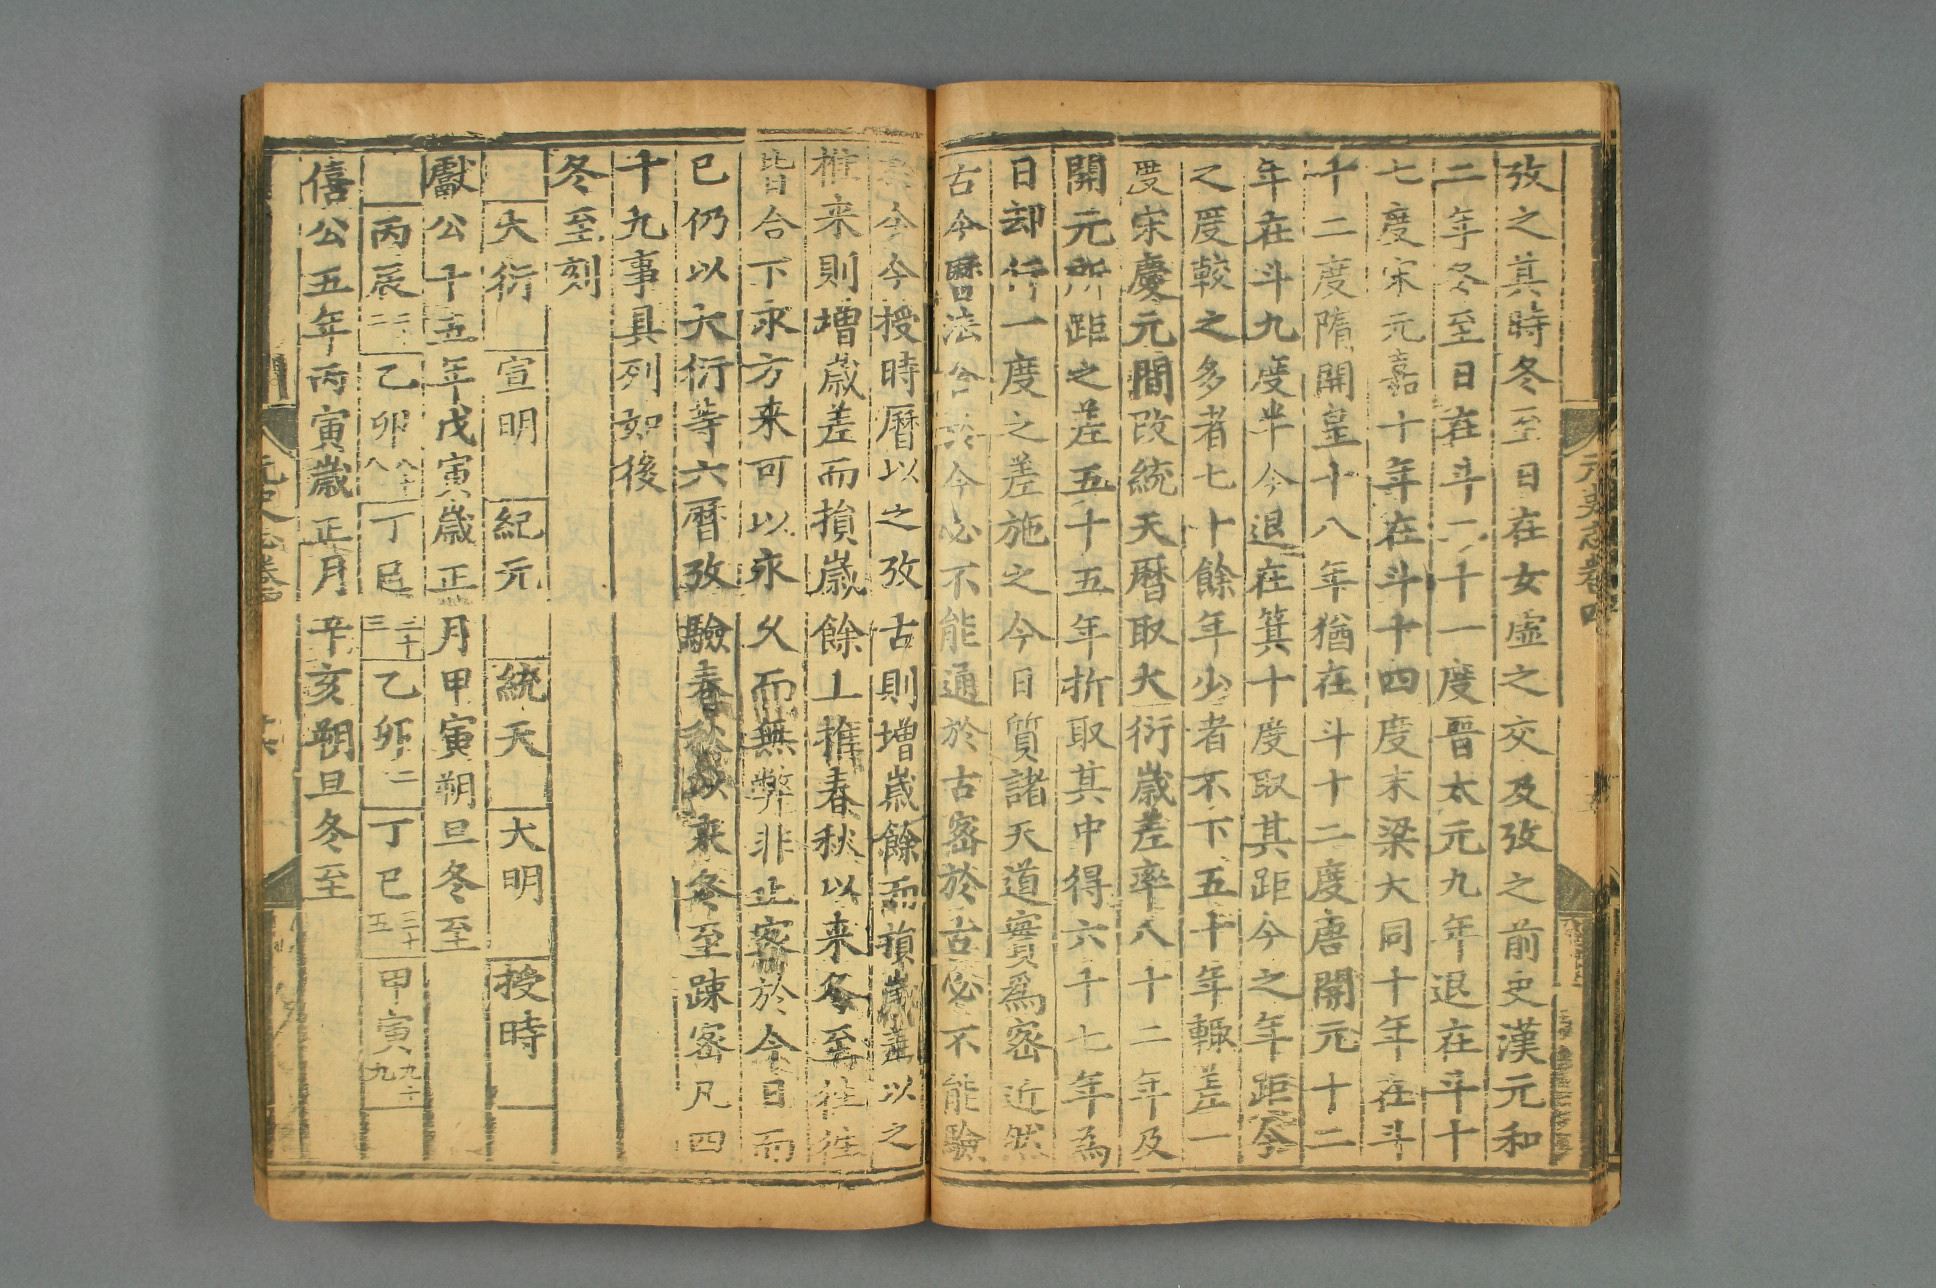 攷之其時冬至日在女虛之交及攷之前史漢元和
二年冬至日在斗二十一度晉太元九年退在斗十
七度宋元嘉十年在斗十四度末梁大同十年在斗
十二度隋開皇十八年猶在斗十二度唐開元十二
年在斗九度半今退在箕十度取其距今之年距今
之度較之多者七十餘年少者不下五十年輒差一
度宋慶元間改統天曆取大衍歲差率八十二年及
開元所距之差五十五年折取其中得六十七年為
日却行一度之差施之今日質諸天道實爲密近然
古今曆法合於今必不能通於古密於古必不能驗
於今今授時曆以之攷古則增歲餘而損歲差以之
推来則增歲差而損歲餘上推春秋以来冬至往往
皆合下求方来可以永久而無弊非止密於今日而
已仍以大衍等六曆攷驗春秋以来冬至踈密凡四
十九事具列如後
冬至刻
大衍 宣明 紀元 統天 大明 授時
獻公十五年戊寅歲正月甲寅朔旦冬至
丙辰 乙卯 丁巳 乙卯二 丁巳 甲寅
僖公五年丙寅歲正月辛亥朔旦冬至
元史志卷四